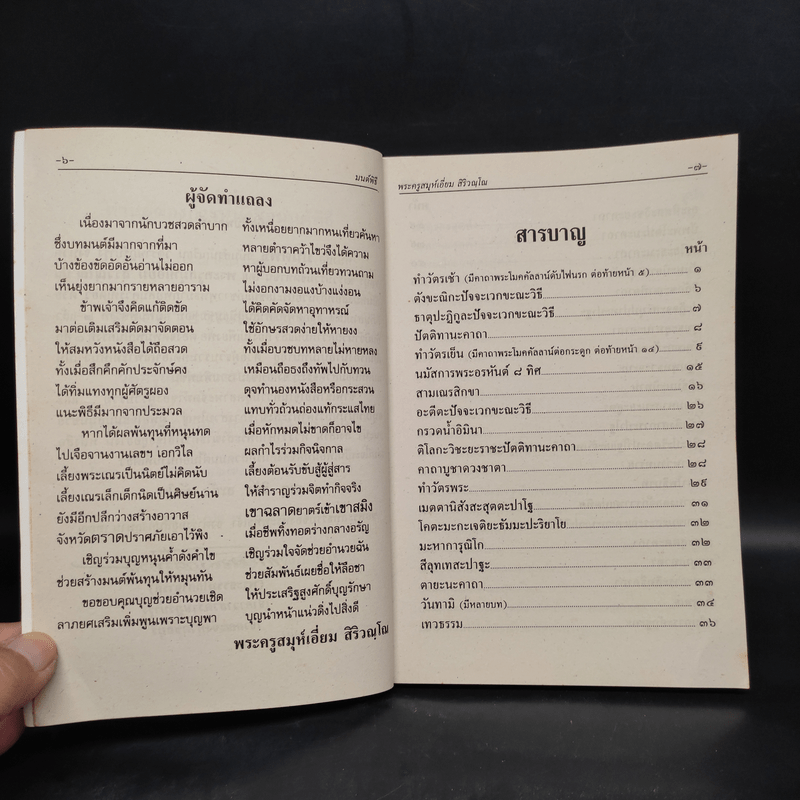 -๖-
มนต์พิธี
ผู้จัดทำแถลง
เนื่องมาจากนักบวชสวดลำบาก ทั้งเหนื่อยยากมากหนเที่ยวค้นหา
ซึ่งบทมนต์มีมากจากที่มา หลายตำราคว้าไขว่จึงได้ความ
บ้างข้องขัดอัดอั้นอ่านไม่ออก หาผู้บอกบทถ้วนเที่ยวทวนถาม
เห็นยุ่งยากมากรายหลายอาราม ไม่งอกงามงอแงบ้างแง่งอน
ข้าพเจ้าจึงคิดแก้ติดขัด ได้คิดคัดจัดหาอุทาหรณ์
มาต่อเติมเสริมตัดมาจัดตอน ใช้อักษรสวดง่ายให้หายงง
ให้สมหวังหนังสือได้ถือสวด ทั้งเมื่อบวชบทหลายไม่หายหลง
ทั้งเมื่อสึกคึกคักประจักษ์คง เหมือนถือธงถึงทัพไปกับทวน
ได้ทิ่มแทงทุกผู้ศัตรูผอง ดุจทำนองหนังสือหรือกระสวน
แนะพิธีมีมากจากประมวล แทบทั่วถ้วนถ่องแท้กระแสไทย
หากได้ผลพ้นทุนที่หนุนทด เมื่อหักหมดไม่ขาดก็อาจไข
ไปเจือจานงานเลขฯ เอกวิไล ผลกำไรร่วมกิจนิจกาล
เลี้ยงพระเณรเป็นนิตย์ไม่คิดนับ เลี้ยงต้อนรับขับสู้ผู้สู่สาร
เลี้ยงเณรเล็กเด็กนิดเป็นศิษย์นาน ให้สำราญร่วมจิตทำกิจจริง
ยังมีอีกปลีกว่างสร้างอาวาส เขาฉลาดยาตร์เข้าเขาสมิง
จังหวัดตราดปราศภัยเอาไว้พิง เมื่อชีพทิ้งทอดร่างกลางอรัญ
เชิญร่วมบุญหนุนค้ำดังคำไข เชิญร่วมใจจัดช่วยอำนวยฉัน
ช่วยสร้างมนต์พ้นทุนให้หมุนทัน ช่วยสัมพันธ์เผยชื่อให้ลือชา
ขอขอบคุณบุญช่วยอำนวยเชิด ให้ประเสริฐสูงศักดิ์บุญรักษา
ลาภยศเสริมเพิ่มพูนเพราะบุญพา บุญนำหน้าแน่วดิ่งไปสิ่งดี
พระครูสมุห์เอี่ยม สิริวณฺโณ
พระครูสมุห์เอี่ยม สิริวณฺโณ
-๗-
สารบาญ
หน้า
ทำวัตรเช้า (มีคาถาพระโมคคัลลาน์ดับไฟนรก ต่อท้ายหน้า ๕) ๑
ตังขะณิกะปัจจะเวกขะณะวิธี ๖
ธาตุปะฏิกูละปัจจะเวกขะณะวิธี ๗
ปัตติทานะคาถา ๘
ทำวัตรเย็น (มีคาถาพระโมคคัลลาน์ต่อกระดูก ต่อท้ายหน้า ๑๔) ๙
นมัสการพระอรหันต์ ๘ ทิศ ๑๕
สามเณรสิกขา ๑๖
อะตีตะปัจจะเวกขะณะวิธี ๒๖
กรวดน้ำอิมินา ๒๗
ติโลกะวิชะยะราชะปัตติทานะคาถา ๒๘
คาถาบูชาดวงชาตา ๒๘
ทำวัตรพระ ๒๙
เมตตานิสังสะสุตตะปาโฐ ๓๑
โคตะมะกะเจติยะธัมมะปะริยาโย ๓๒
มะหาการุณิโก ๓๒
สีลุทเทสะปาฐะ ๓๓
ตายะนะคาถา ๓๓
วันทามิ (มีหลายบท) ๓๔
เทวธรรม ๓๖